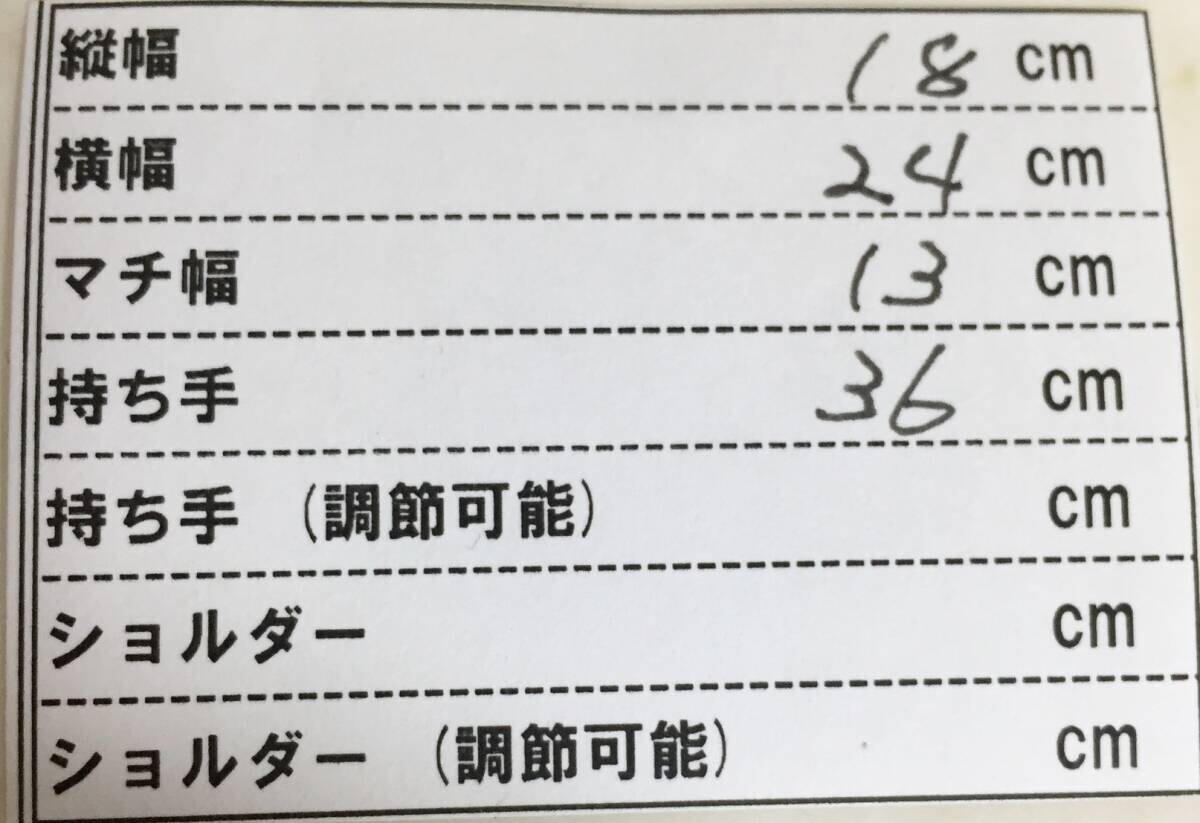 縦幅 18 cm
横幅 24 cm
マチ幅 13 cm
持ち手 36 cm
持ち手 (調節可能) cm
ショルダー cm
ショルダー (調節可能) cm